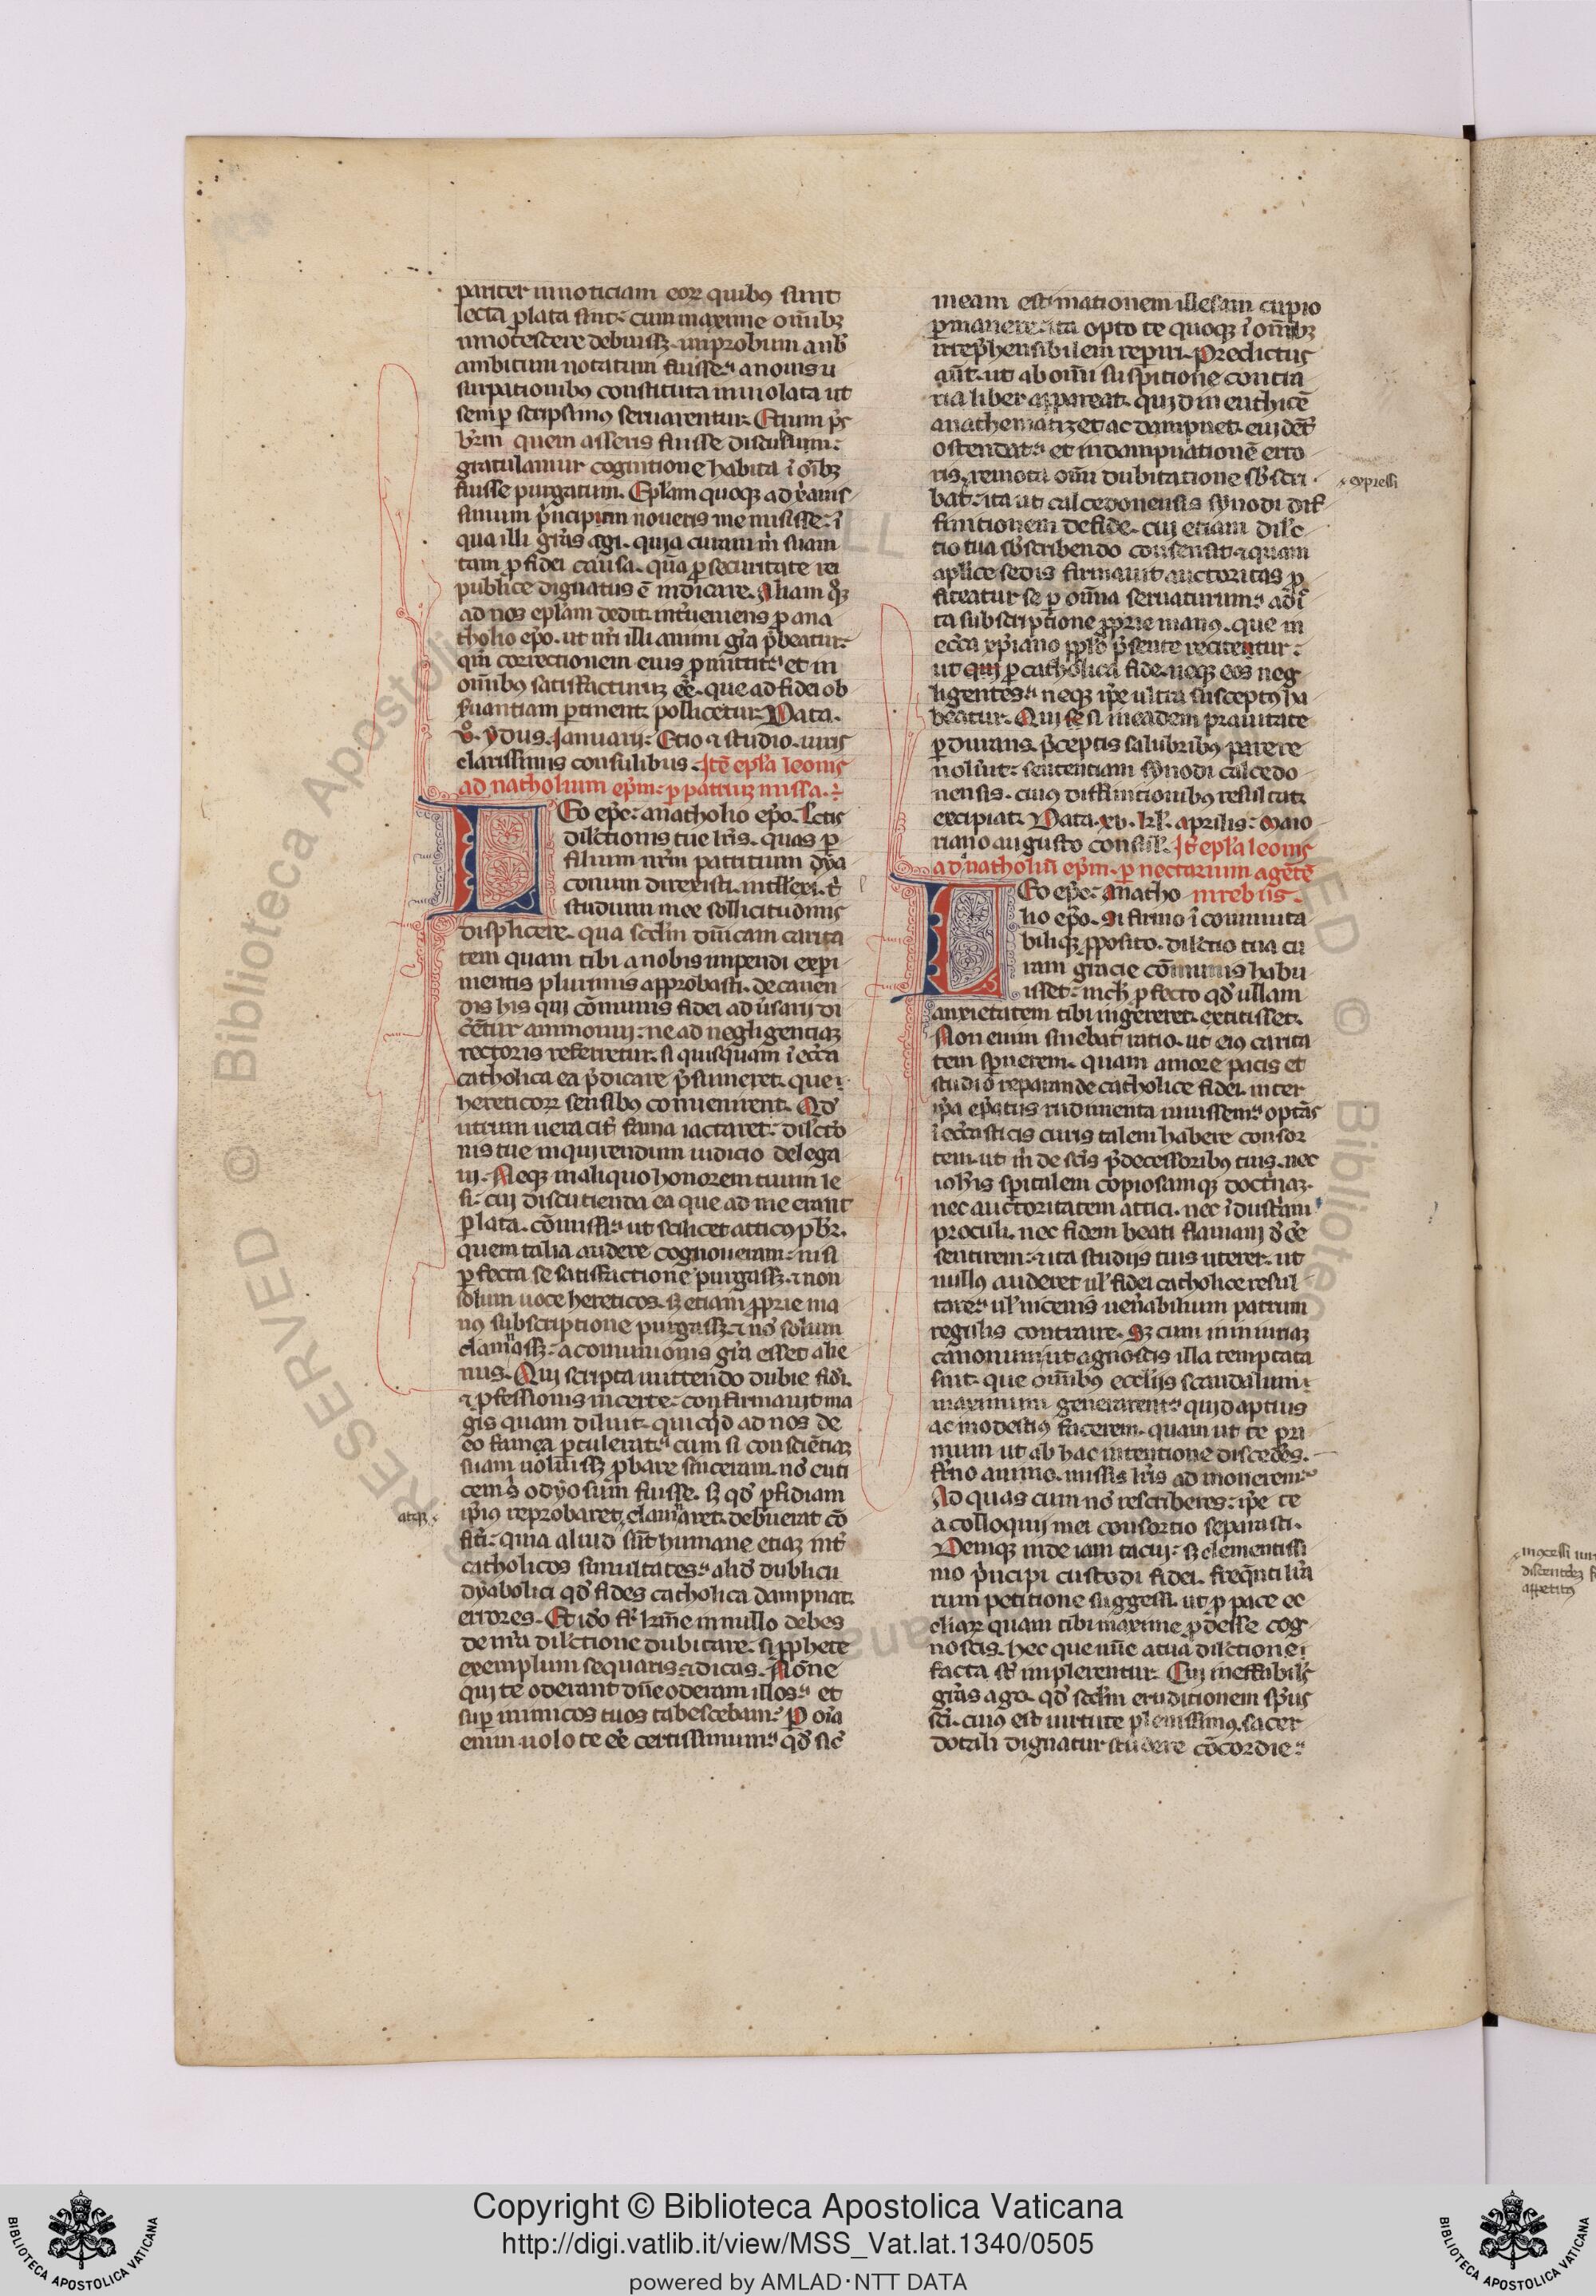 pariter in noticiam eoꝝ quibꝯ sunt
lecta ꝑlata sint. cum maxime om̅ibꝫ
innotescere debuissꝫ. improbum a nob̅
ambitum notatum fuisse. a nouis u
surpationibꝯ constituta inuiolata ut
semꝑ scripsimꝯ seruarentur. Etium p̅s
br̅m quem asseris fuisse discussum.
gratulamur cognitione habita i̅ oi̅bꝫ
fuisse purgatum. Ep̅lam quoqꝫ ad xp̅ianis
simum p̅ncipem noueris me misisse. i̅
qua illi gr̅as agi. quia curam m̅ suam
tam ꝓ fidei causa. qua̅ ꝓ securitate rei
publice dignatus e̅ indicare. Aliam qꝫ
ad nos ep̅lam dedit. int̅ueniens ꝓ ana
tholio ep̅o. ut nr̅i illi animi gr̅a p̅beatur.
qm̅ correctionem eius ꝓmittit. et in
om̅ibꝯ satisfacturuꝫ ee̅. que ad fidei ob
seruantiam ꝑtinent pollicetur. Data.
v̊. ydus. Januarij. Etio ⁊ studio. uiris
clarissimis consulibus. Ite̅ ep̅la leonis
ad natholium ep̅m. ꝑ patriuꝫ missa.
LEo ep̅c. anatholio ep̅o. Lc̅tis
dil̅ctionis tue lr̅is. quas ꝑ
filium nr̅m patritum dya
conum direxisti. intll̅exi. t̅
studium mee sollicitudinis
displicere. qua sc̅dm̅ dn̅icam carita
tem quam tibi a nobis impendi exꝑi
mentis plurimis approbasti. de cauen
dis his qui co̅munis fidei adu̅sarij di
ce̅tur ammonui. ne ad negligentiaꝫ
rectoris referretur. si quisquam i̅ ecc̅a
catholica ea p̅dicare p̅sumeret. que
hereticoꝝ sensibꝯ conuenirent. Qd̅
utrum ueracit̅ fama iactaret. dil̅ctio
nis tue inquirendum iudicio delega
ui. Neqꝫ in aliquo honorem tuum le
si. cui discutienda ea que ad me erant
ꝑlata. co̅misi. ut scilicet atticꝯ pb̅r.
quem talia audere cognoueram. nisi
ꝑfecta se satisfactione purgassꝫ. ⁊ non
solum uoce hereticos. sꝫ etiam ꝓprie ma
nꝯ subscriptione purgassꝫ. ⁊ no̅ solum
clamassꝫ. a comunionis gr̅a esset alie
nus. Qui scripta mittendo dubie fidi.
⁊ ꝓfessionis incerte. confirmauit ma
gis quam diluit. quicqd̅ ad nos de
eo fama ꝑtulerat. cum si conscie̅tiaꝫ
suam uoluissꝫ ꝓbare sinceram. no̅ euti
cem s̅ odyosum fuisse. sꝫ qd̅ ꝑfidiam
ip̅ius reprobaret. clamaret. debuerat co̅
atqꝫ.
fit̅i. quia aliud su̅t humane etiaꝫ int̅
catholicos simultates. alid̅ dublicu
dyabolici qd̅ fides catholica dampnat.
errores. Et id̅o fr̅ kar̅me in nullo debes
de nr̅a dil̅ctione dubitare. si ꝓphete
exemplum sequaris ⁊ dicas. No̅ne
qui te oderant dn̅e oderam illos. et
suꝑ inimicos tuos tabescebam? P oi̅a
enim uolo te ee̅ certissimum. qd̅ sic̅
meam estimationem illesam cupio
ꝑmanere. ita opto te quoqꝫ i̅ om̅ibꝫ
irrep̅hensibilem repiri. Predictus
aut̅. ut ab omi̅ suspitione contra
ria liber appareat. quid in euthice̅
anathematizet ac dampnet. euide̅t̅
ostendat. et in dampnatione̅ erro
ris. remota omi̅ dubitatione sb̅scri
expressi
bat. ita ut calcedonensis synodi dif
finitionem de fide. cui etiam dil̅c
tio tua sb̅scribendo consensit. ⁊ quam
aplice̅ sedis firmauit auctoritas ꝓ
fiteatur se ꝑ om̅ia seruaturum. adi̅
ta subscriptione ꝓprie manꝯ. que in
ecc̅a xp̅iano ppl̅o p̅sente recitentur.
ut qui ꝓ catholica fide. neqꝫ eos neg
ligentes. neqꝫ ip̅e ultra susceptꝯ ha
beatur. Qui se si in eadem prauitate
ꝑdurans. p̅ceptis salubribꝯ parere
nolu̅it. sententiam synodi calcedo
nensis. cuiꝯ diffinitionibꝯ resultat.
excipiat. Data. xv. kl̅. aprilis. Maio
riano augusto consul̅. Ite̅ ep̅la leonis
ad natholiu̅ ep̅m. ꝑ nectarium age̅te̅
LEo ep̅c. Anatho in rebus.
lio ep̅o. Si firmo i̅ commuta
biliqꝫ ꝓposito. dil̅ctio tua cu
ram gracie co̅munis habu
isset. nichil ꝓfecto qd̅ ullam
anxietatem tibi ingereret. extitisset.
Non enim sinebat ratio. ut eiꝯ carita
tem sꝑnerem. quam amore pacis et
studio reparande catholice fidei. inter
ip̅a ep̅atus rudimenta iuuissem. opta̅s
i̅ ecc̅asticis curis talem habere consor
tem. ut m̅ de sc̅is p̅decessoribꝯ tuis. nec
ioh̅is sp̅italem copiosamqꝫ doct̅naꝫ.
nec auctoritatem attici. nec i̅dustriam
proculi. nec fidem beati flauiani d̅ ee̅
sentirem. ⁊ ita studijs tuis uterer. ut
nullꝯ auderet ul̅ fidei catholice resul
tare. ul̅ nicenis uen̅abilium patrum
regulis contraire. Sꝫ cum in iniuriaꝫ
canonum ut agnoscis illa temptata
sint. que om̅ibꝯ eccl̅ijs scandalum
maximum generarent. quid aptius
ac modestiꝯ facerem. quam ut te pri
mum ut ab hac intentione discederes.
fr̅no animo. missis lr̅is admonerem.
Ad quas cum no̅ rescriberes. ip̅e te
a colloquij mei consortio separasti.
Deniqꝫ inde iam tacui. sꝫ clementissi
mo p̅ncipi custodi fidei. freque̅ti lr̅a
rum petitione suggessi. ut ꝓ pace ec
clieaꝝ quam tibi maxime ꝓdesse cog
noscis. hec que nu̅c a tua dil̅ctione
facta su̅t implerentur. Cui ineffabilit̅
gr̅as ago. qd̅ sc̅dm̅ eruditionem sp̅us
sc̅i. cuiꝯ est uirtute plenissimꝯ. sacer
dotali dignatur studere co̅cordie.
Copyright © Biblioteca Apostolica Vaticana
http://digi.vatlib.it/view/MSS_Vat.lat.1340/0505
powered by AMLAD·NTT DATA
BIBLIOTECA APOSTOLICA VATICANA
BIBLIOTECA APOSTOLICA VATICANA